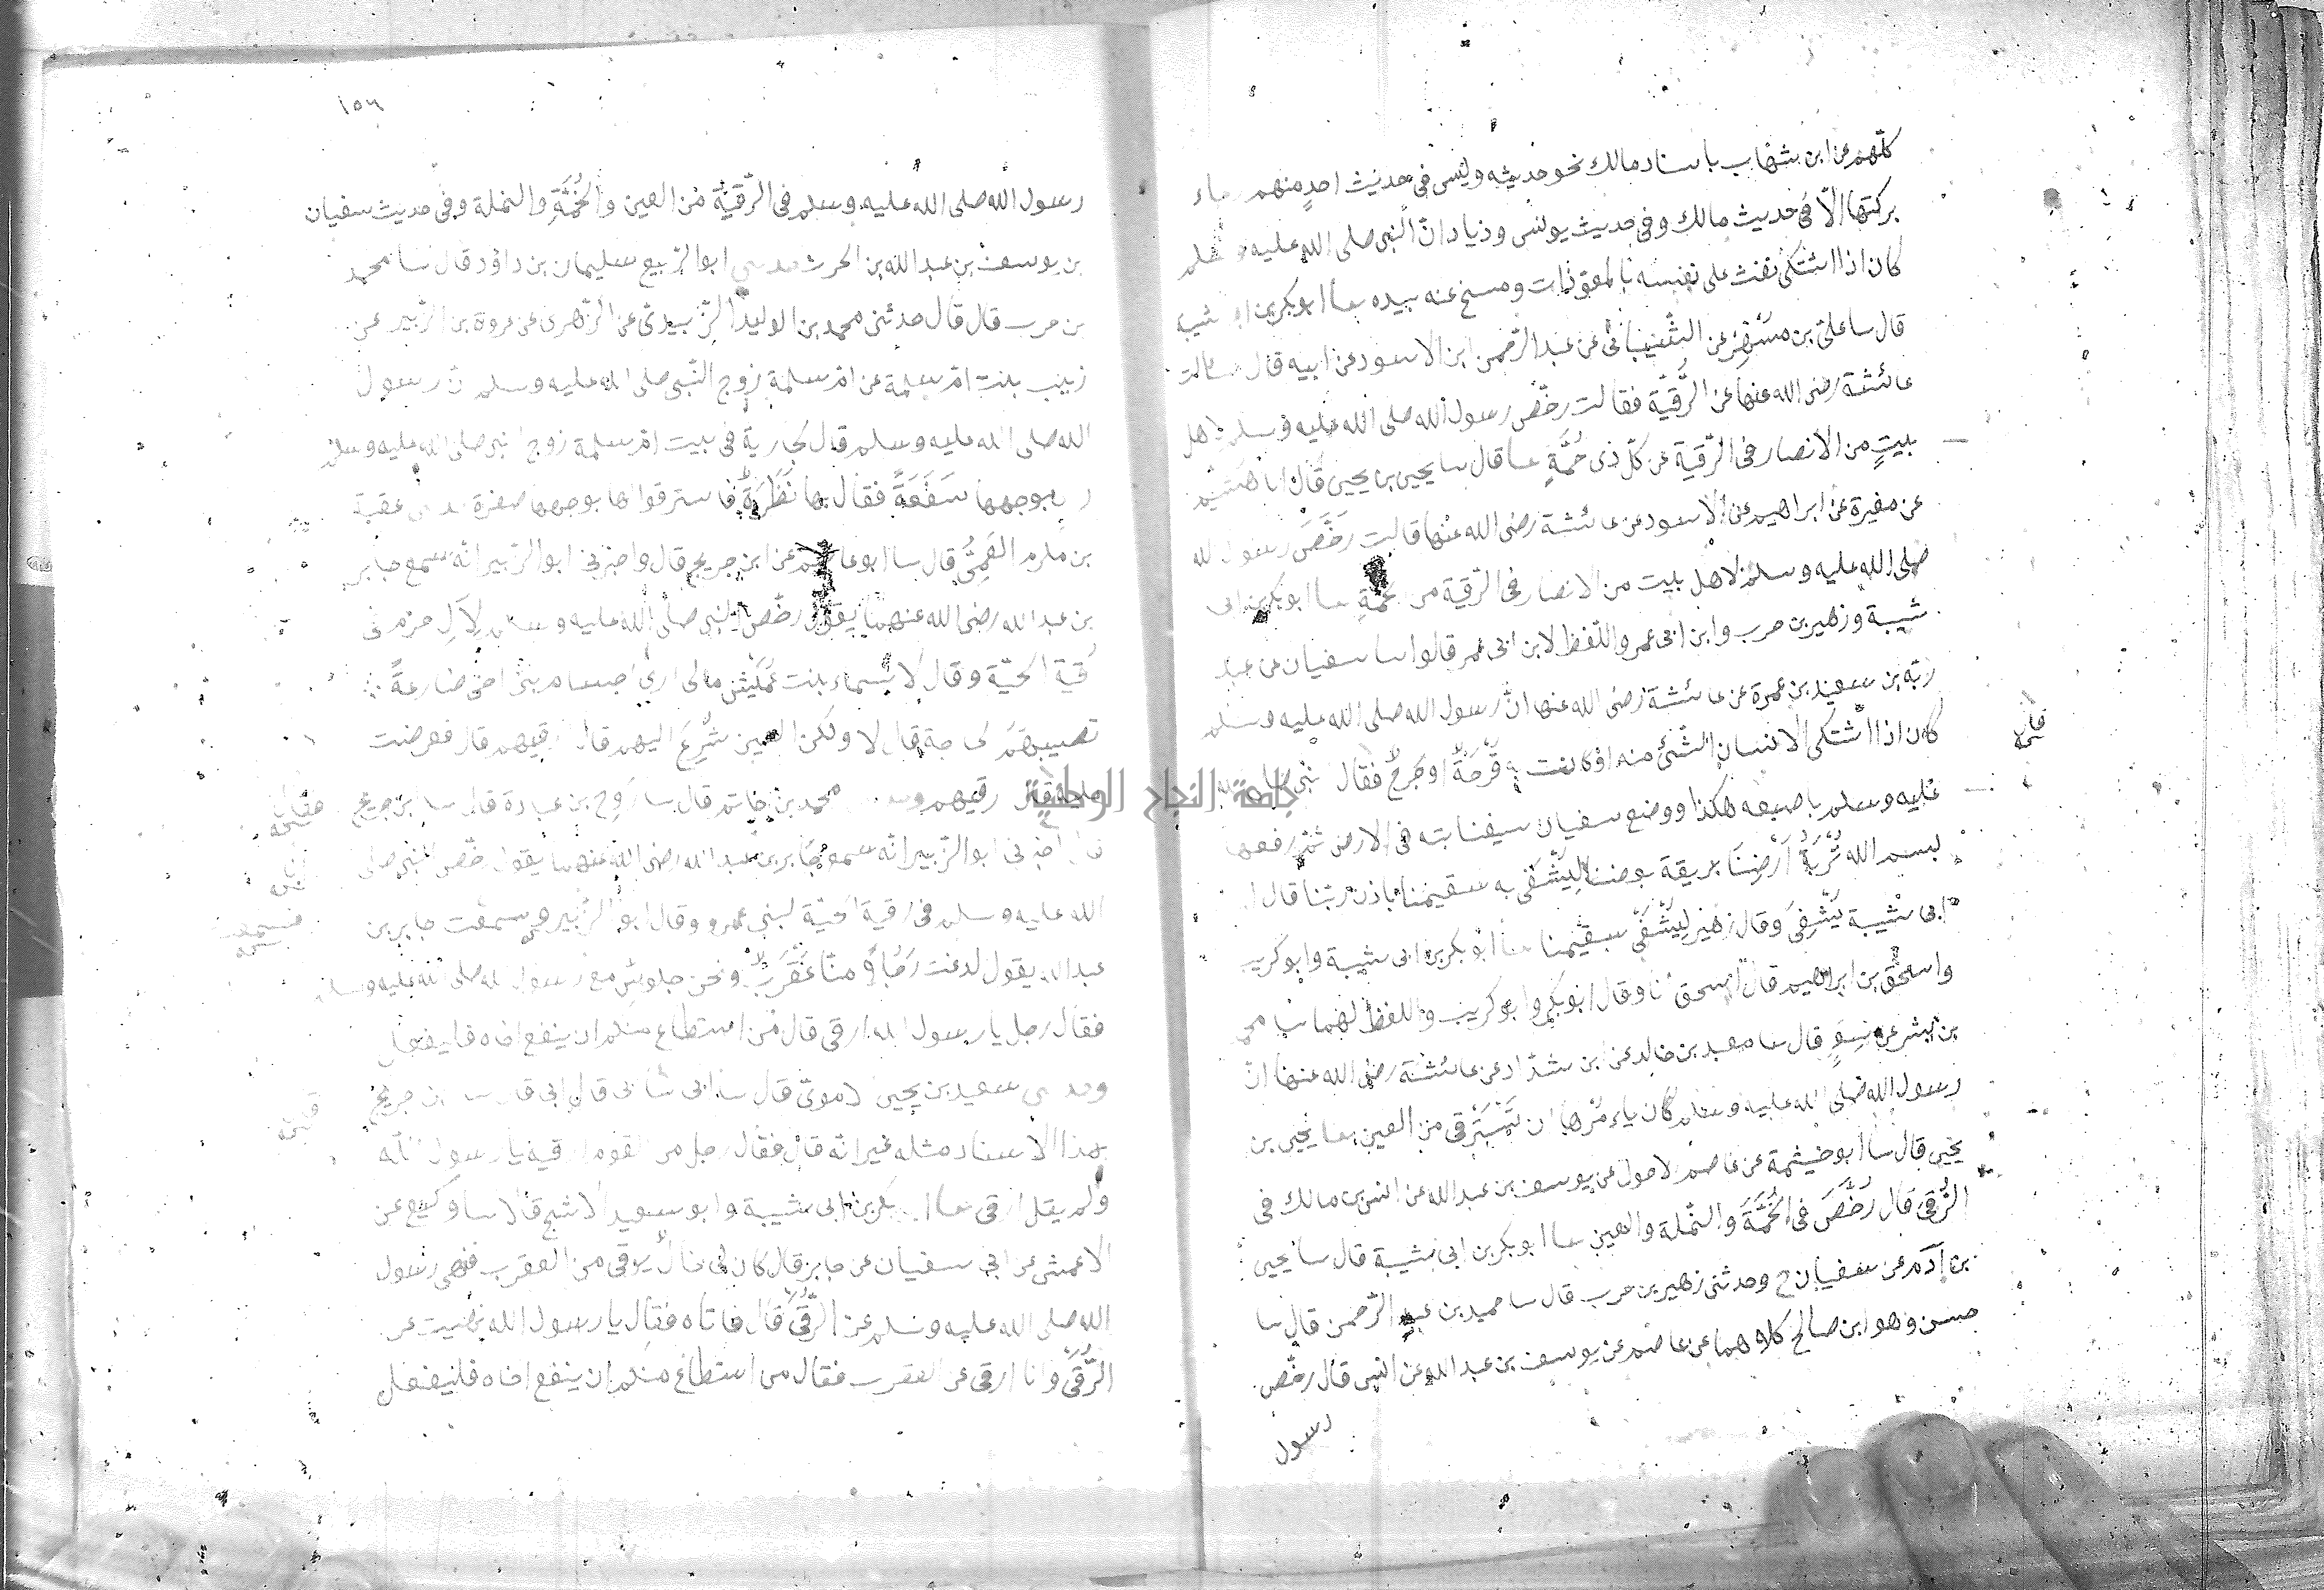 كلّهم عن ابن شهاب باسناد مالك نحو حديثه وليس فى حديث احد منهم رجاء
بركتها الّا فى حديث مالك وفى حديث يونس وزياد انّ النبى صلى الله عليه وسلم
كان اذا اشتكى نفث على نفسه بالمعوّذات ومسح عنه بيده ابو بكر بن ابى شيبة
قال سا علىّ بن مسهر عن الشّيبانىّ عن عبد الرّحمن ابن الاسود عن ابيه قال سالت
عائشة رضى الله عنها عن الرّقية فقالت رخّص رسول الله صلى الله عليه وسلم لاهل
بيت من الانصار فى الرّقية عن كلّ ذى حُمَةٍ قال سا يحيى بن يحيى قال انا هشيم
عن مغيرة عن ابراهيم عن الاسود عن عائشة رضى الله عنها قالت رَخَّصَ رسول لله
صلى الله عليه وسلم لاهل بيت من الانصار فى الرّقية من الحمة ابو بكر بن ابى
شيبة وزهير بن حرب وابن ابى عمر واللّفظ لابن ابى عمر قالوا سا سفيان عن عبد
ربّه بن سعيد بن عمرة عن عائشة رضى الله عنها انّ رسول الله صلى الله عليه وسلم
كان اذا اشتكى الانسان الشّئ منه او كانت به قرحة او جرح فقال
عليه وسلم باصبعه هكذا ووضع سفيان سبّابته فى الارض ثمّ رفعها
بسم الله تُرْبَةُ أَرْضِنَا بريقة بعضنا لِيُشْفَى به سقيمنا باذن ربّنا قال
ابى شيبة يُشْفِى وقال زهير لِيُشْفَى سقيمنا ابو بكر بن ابى شيبة وابو كريب
واسحٰق بن ابراهيم قال اسحق انا وقال ابو بكر وابو كريب واللفظ لهما سا محمد
بن بشر عن مسعر قال سا معبد بن خالد عن ابن شدّاد عن عائشة رضى الله عنها انّ
رسول الله صلى الله عليه وسلم كان ياءمرها ان تَسْتَرْقى من العين يحيى بن
يحيى قال سا ابو خيثمة عن عاصم الاحول عن يوسف بن عبد الله عن انس بن مالك فى
الرُّقى قال رُخَّصَ فى الحُمَةَ والنّملة والعين ابو بكر بن ابى شيبة قال سا يحيى
بن آدم عن سفيان ح وحدثنى زهير بن حرب قال سا حميد بن عبد الرّحمن قال سا
حسن وهو ابن صالح كلاهما عن عاصم عن يوسف بن عبد الله عن انس قال رخّص
رسول
١٥٦
رسول الله صلى الله عليه وسلم فى الرّقية من العين والحُمَةِ والنملة وفى حديث سفيان
بن يوسف بن عبد الله بن الحرث ابو الرّبيع سليمان بن داؤد قال سا محمد
بن حرب قال قال حدثنى محمد بن الوليد الزّبيدىّ عن الزّهرى عن عروة بن الزّبير عن
زينب بنت امّ سلمة عن امّ سلمة زوج النّبى صلى الله عليه وسلم انّ رسول
الله صلى الله عليه وسلم قال لجارية فى بيت امّ سلمة زوج النبى صلى الله عليه وسلم
بوجهها سَفْعَةً فقال بها نَظْرَةٌ فاسترقوا لها بوجهها صفرة عقبة
بن مكرم العَمِّىُّ قال سا ابو عاصم عن ابن جريج قال واخبرنى ابو الزّبير انّه سمع جابر
بن عبد الله رضى الله عنهما يقول رخّص النبى صلى الله عليه وسلم لِآلِ حزم فى
رُقية الحيّة وقال لاسماء بنت عُمَيْسٍ مالى ارى اجسام بنى اخى ضارعةً
تصيبهم الحاجة قال لا ولكن العين تُسْرِعُ اليهم قال ارقيهم قال فعرضت
عليه فقال ارقيهم محمد بن حاتم قال سا رَوح بن عبادة قال سا ابن جريج
قال اخبرنى ابو الزّبير انّه سمع جابر بن عبد الله رضى الله عنهما يقول رخّص النبى صلى
الله عليه وسلم فى رقية الحيّة لبنى عمرو وقال ابو الزّبير سمعت جابر بن
عبد الله يقول لدغت رَجُلاً منّا عَقْرَبٌ ونحن جلوس مع رسول لله صلى لله عليه وسلم
فقال رجل يا رسول الله ارقى قال من استطاع منكم ان ينفع اخاه فليفعل
سعيد بن يحيى الاموىّ قال سا ابى قال ابن جريج
بهذا الاسناد مثله غير انّه قال فقال رجل من القوم ارقيه يا رسول الله
ولم يقل ارقى ابو بكر بن ابى شيبة وابو سعيد الاشج قالا سا وكيع عن
الاعمش عن ابى سفيان عن جابر قال كان لى خال يرقى من العقرب فنهى رسول
الله صلى الله عليه وسلم عن الرُّقَى قال فاتاه فقال يا رسول الله نهيت عن
الرُّقَى وانا ارقى من العقرب فقال من استطاع منكم ان ينفع اخاه فليفعل
جامعة النجاح الوطنية